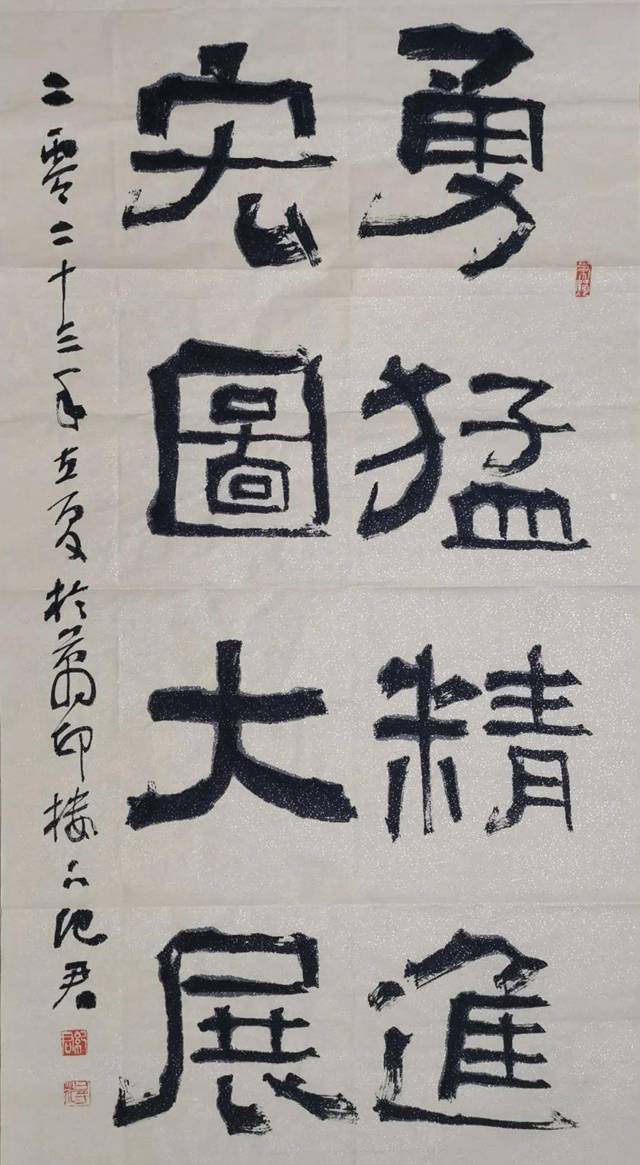 勇猛精進
宏圖大展
二零二十三年夏於萬印樓君